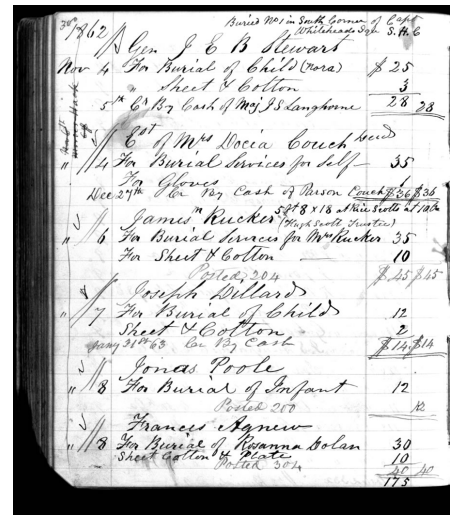 Buried No 1 in South Corner of Capt
Whiteheads Sqr S.H.C
1862
Gen J E B Stewart
Nov 4 For Burial of Child (Nora) $ 25
" Sheet & Cotton 3
5th Cr By Cash of Maj J S Langhorne 28 28
Est of Mrs Docia Couch Decd
" 4 For Burial Services for Self 35
For Gloves 1
Dec 27th Cr By Cash of Parson Couch $36 $36
James Rucker 5 ft 8 x 18 at Rice Scotts at 10
(Hugh Scott Trustee)
" 6 For Burial Services for Mrs Rucker 35
For Sheet & Cotton 10
Posted 204 $45 $45
Joseph Dillard
" 7 For Burial of Child 12
Sheet & Cotton 2
Jany 31st 63 Cr By Cash $14 $14
Jonas Poole
" 8 For Burial of Infant 12
Posted 200 12
Frances Agnew
" 8 For Burial of Rosanna Dolan 30
Sheet Cotton & Plate 10
Posted 304 40 40
175